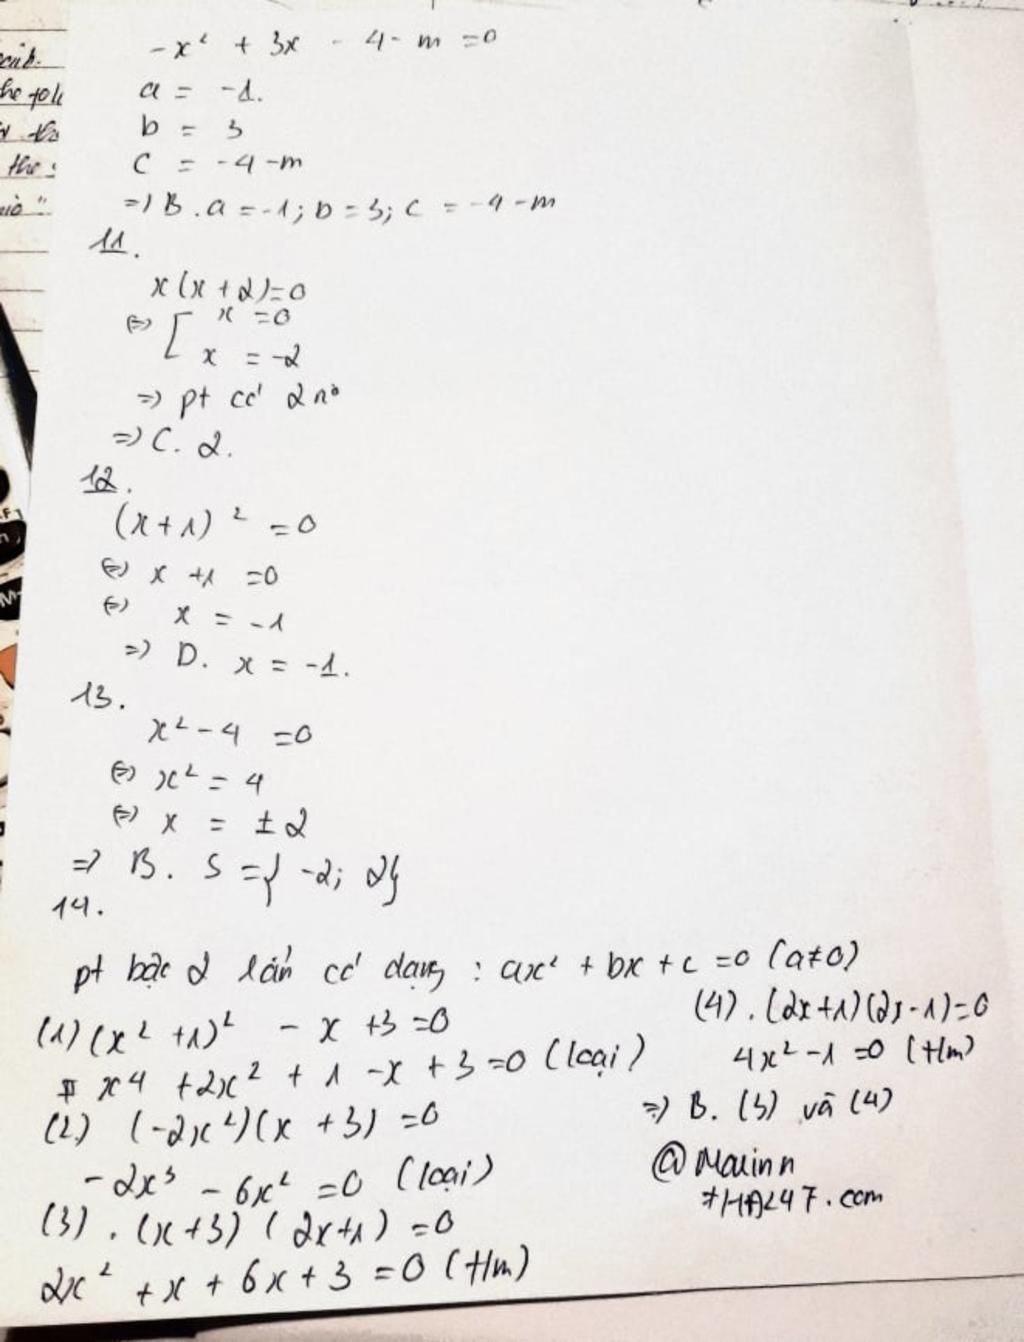 -x² + 3x - 4 - m = 0
a = -1.
b = 3
c = -4 - m
=> B. a = -1; b = 3; c = -4 - m
11.
x(x + 2) = 0
<=> [ x = 0
x = -2
=> pt có 2 n⁰
=> C. 2.
12.
(x + 1)² = 0
<=> x + 1 = 0
<=> x = -1
=> D. x = -1.
13.
x² - 4 = 0
<=> x² = 4
<=> x = ± 2
=> B. S = { -2; 2}
14.
pt bậc 2 1 ẩn có dạng : ax² + bx + c = 0 (a ≠ 0)
(1) (x² + 1)² - x + 3 = 0
x⁴ + 2x² + 1 - x + 3 = 0 (loại)
(2) (-2x²)(x + 3) = 0
-2x³ - 6x² = 0 (loại)
(3). (x + 3) (2x + 1) = 0
2x² + x + 6x + 3 = 0 (t/m)
(4). (2x + 1)(2x - 1) = 0
4x² - 1 = 0 (t/m)
=> B. (3) và (4)